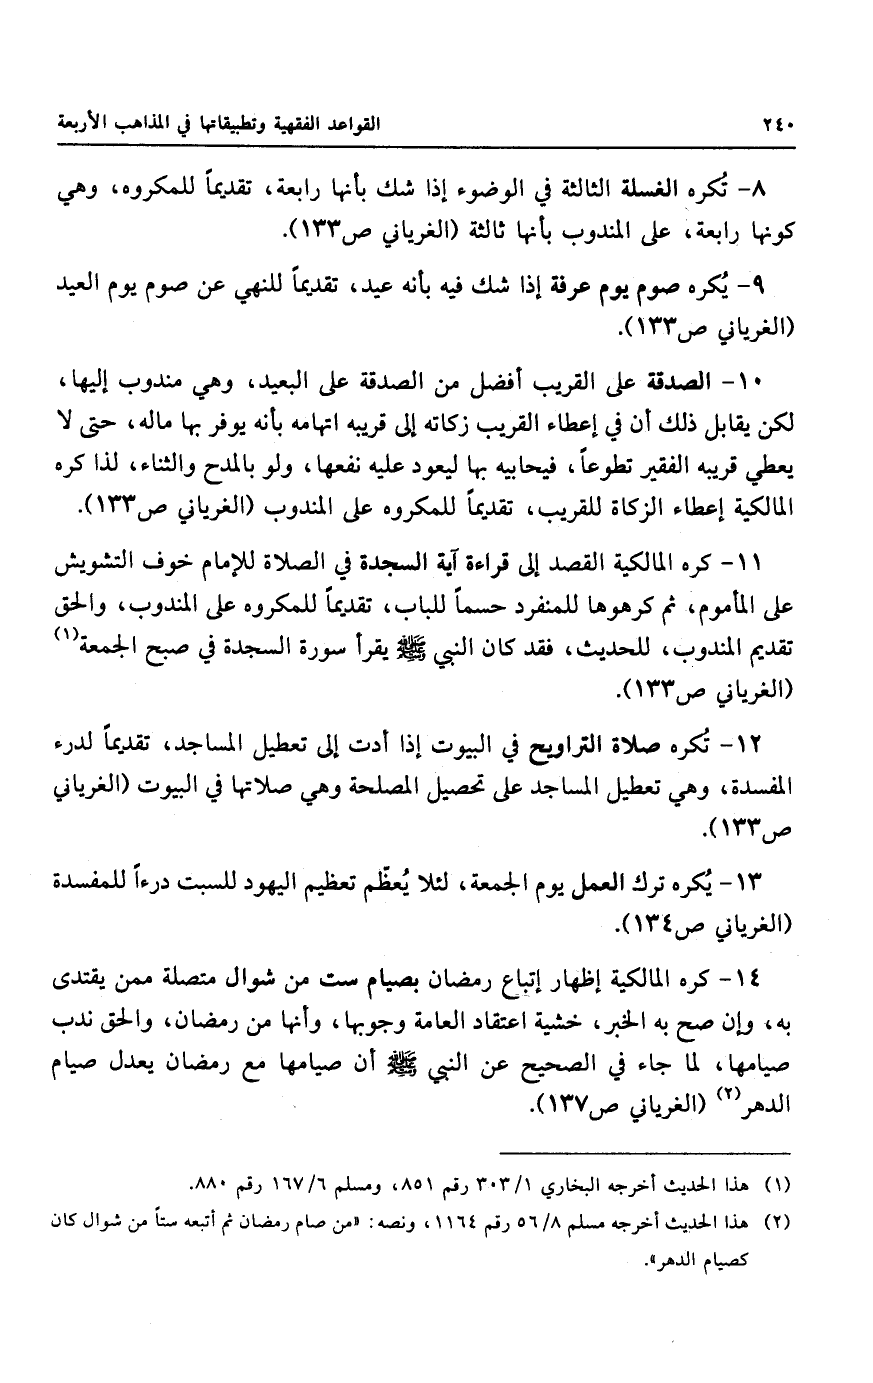 ٢٤٠ القواعد الفقهية وتطبيقاتها في المذاهب الأربعة
٨- تُكره الغسلة الثالثة في الوضوء إذا شك بأنها رابعة، تقديماً للمكروه، وهي
كونها رابعة، على المندوب بأنها ثالثة (الغرياني ص١٣٣).
٩- يُكره صوم يوم عرفة إذا شك فيه بأنه عيد، تقديماً للنهي عن صوم يوم العيد
(الغرياني ص١٣٣).
١٠- الصدقة على القريب أفضل من الصدقة على البعيد، وهي مندوب إليها،
لكن يقابل ذلك أن في إعطاء القريب زكاته إلى قريبه اتهامه بأنه يوفر بها ماله، حتى لا
يعطي قريبه الفقير تطوعاً، فيحابيه بها ليعود عليه نفعها، ولو بالمدح والثناء، لذا كره
المالكية إعطاء الزكاة للقريب، تقديماً للمكروه على المندوب (الغرياني ص١٣٣).
١١- كره المالكية القصد إلى قراءة آية السجدة في الصلاة للإمام خوف التشويش
على المأموم، ثم كرهوها للمنفرد حسماً للباب، تقديماً للمكروه على المندوب، والحق
تقديم المندوب، للحديث، فقد كان النبي ﷺ يقرأ سورة السجدة في صبح الجمعة(١)
(الغرياني ص١٣٣).
١٢- تُكره صلاة التراويح في البيوت إذا أدت إلى تعطيل المساجد، تقديماً لدرء
المفسدة، وهي تعطيل المساجد على تحصيل المصلحة وهي صلاتها في البيوت (الغرياني
ص١٣٣).
١٣- يُكره ترك العمل يوم الجمعة، لئلا يُعظّم تعظيم اليهود للسبت درءاً للمفسدة
(الغرياني ص١٣٤).
١٤- كره المالكية إظهار إتباع رمضان بصيام ست من شوال متصلة ممن يقتدى
به، وإن صح به الخبر، خشية اعتقاد العامة وجوبها، وأنها من رمضان، والحق ندب
صيامها، لما جاء في الصحيح عن النبي ﷺ أن صيامها مع رمضان يعدل صيام
الدهر(٢) (الغرياني ص١٣٧).
(١) هذا الحديث أخرجه البخاري ٣٠٣/١ رقم ٨٥١، ومسلم ١٦٧/٦ رقم ٨٨٠.
(٢) هذا الحديث أخرجه مسلم ٥٦/٨ رقم ١١٦٤، ونصه: «من صام رمضان ثم أتبعه ستاً من شوال كان
كصيام الدهر».